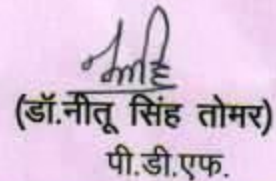 (डॉ.नीतू सिंह तोमर)
पी.डी.एफ.